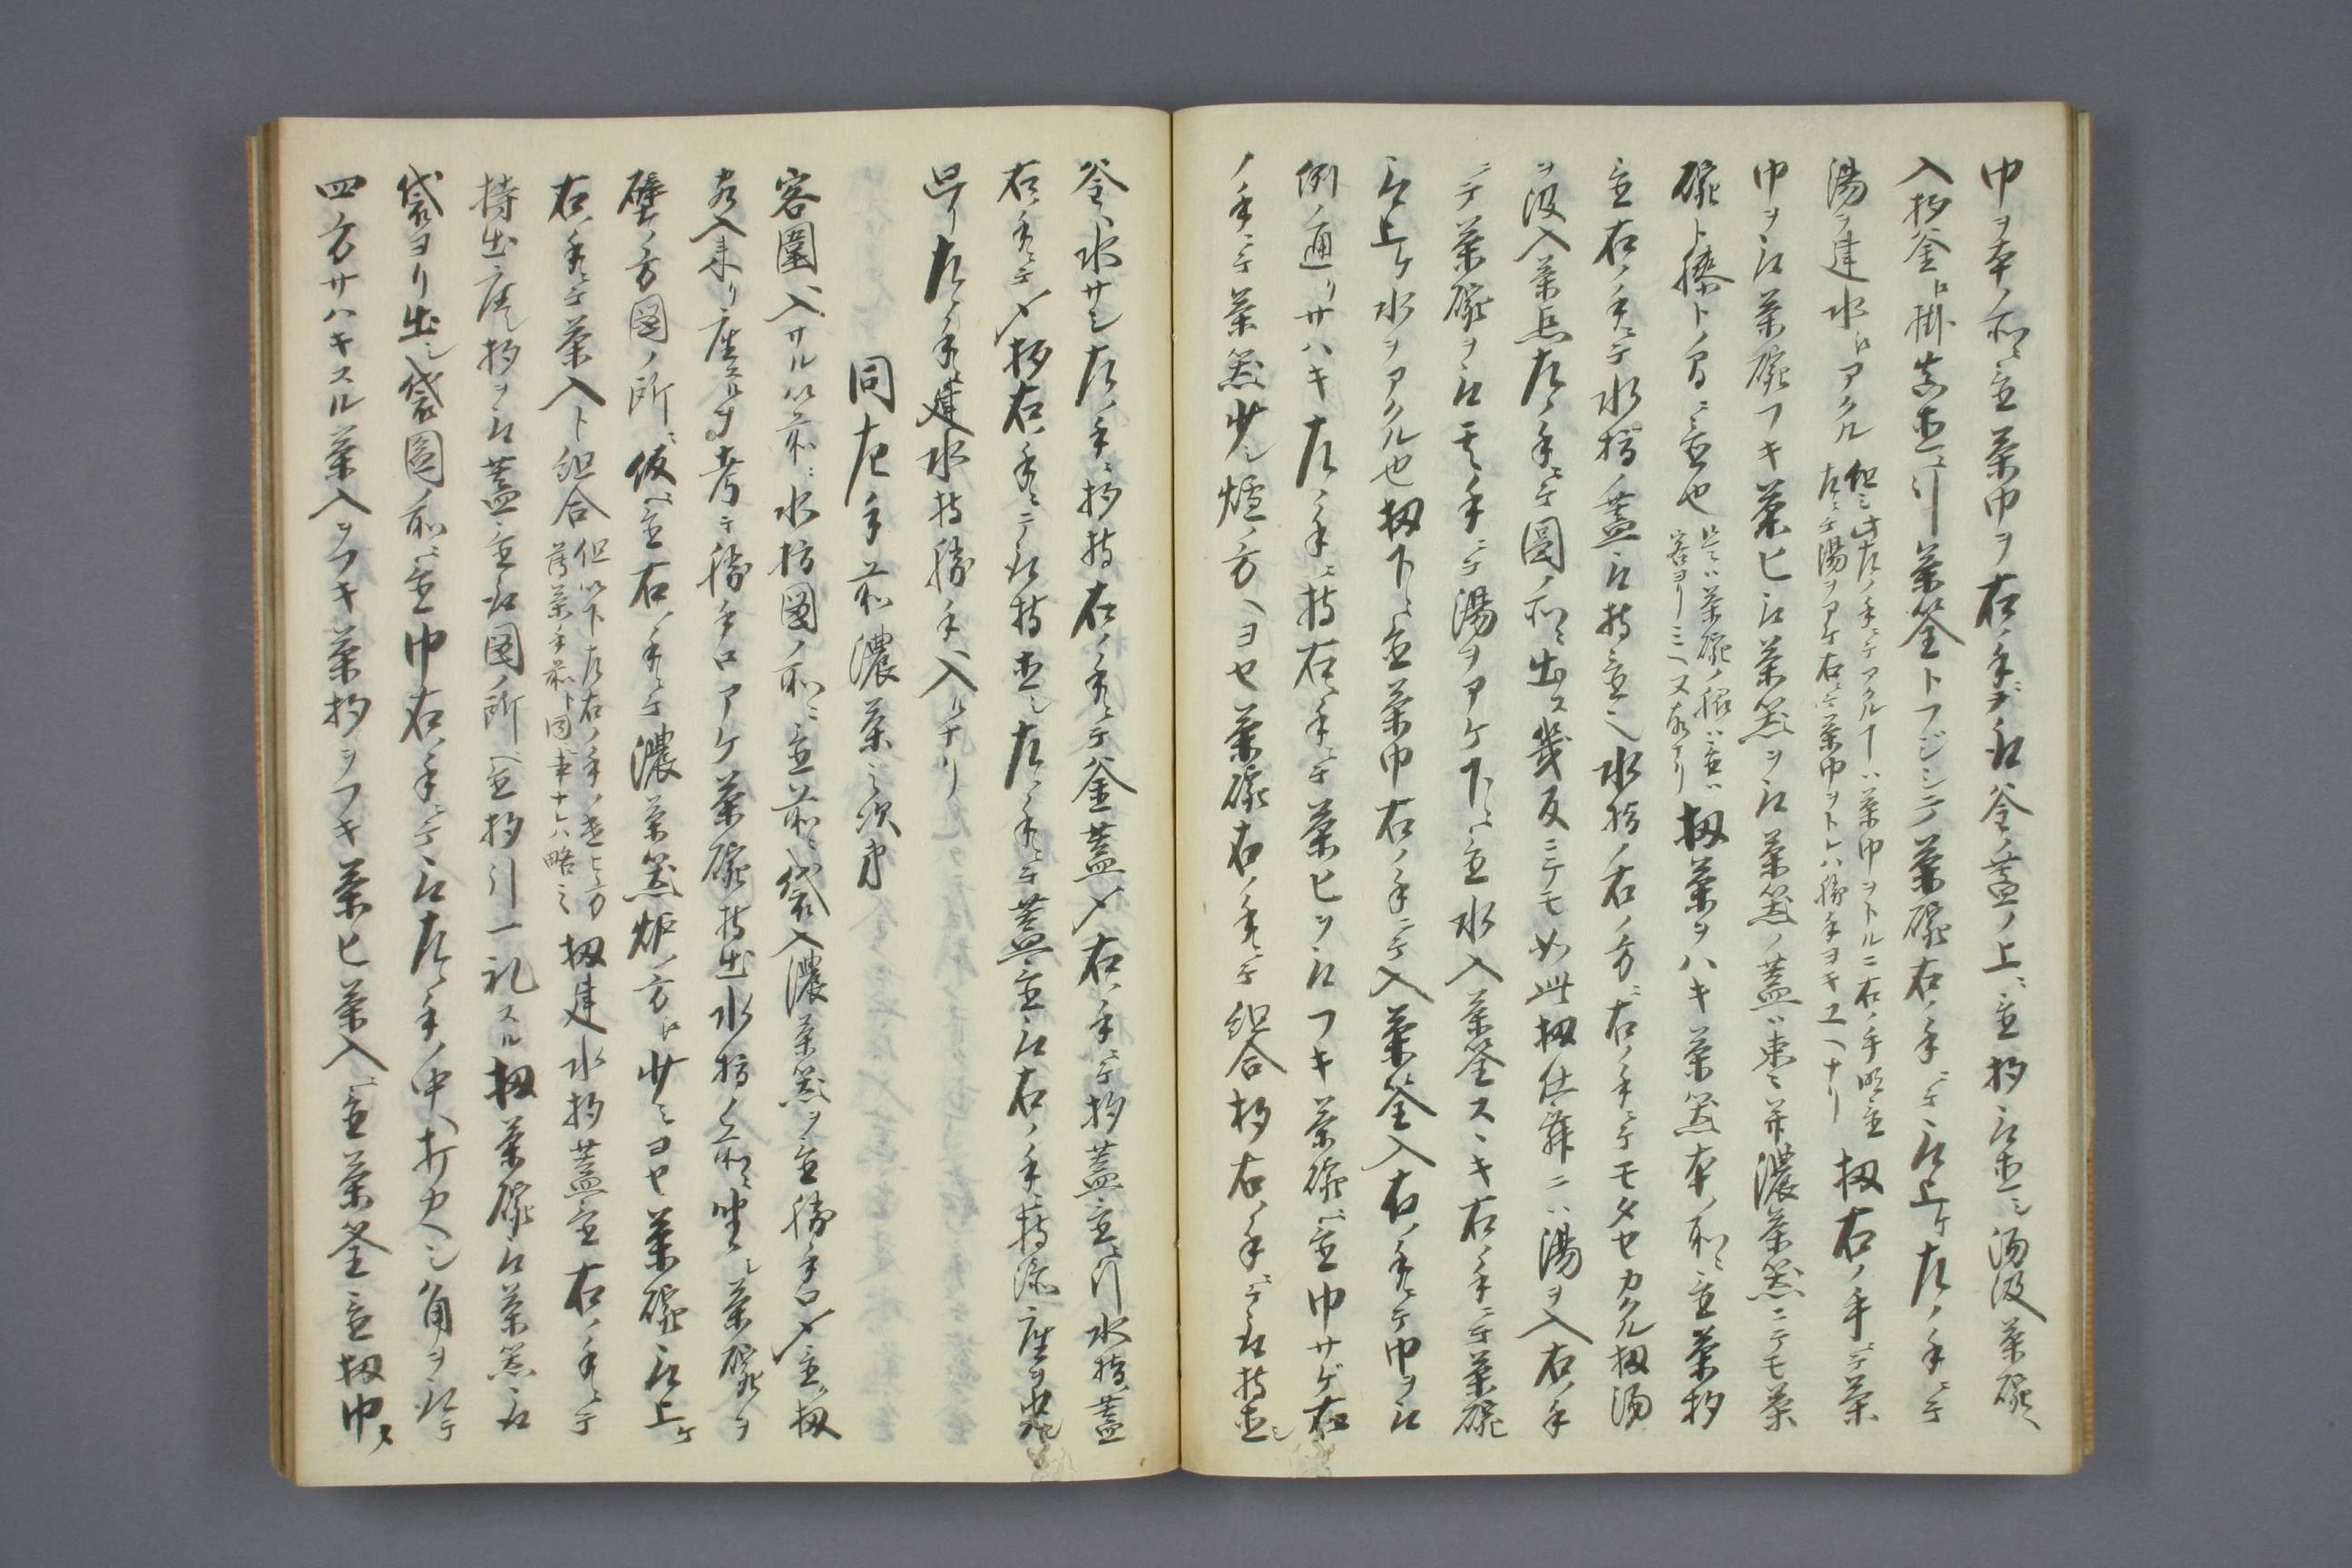 巾ヲ本ノ所ニ置茶巾ヲ右ノ手ヲ取釜ノ蓋ノ上ニ置杓取直シ湯汲茶碗ヘ
入杓釜ニ掛其直ニ引茶筌トフジシテ茶碗右ノ手ニテ取上ケ左ノ手ニテ
湯ヲ建水ニアクル
但シ此左ノ手ニテアクル丁ハ茶巾ヲトルニ右ノ手明置
左ニテ湯ヲアケ右ニテ茶巾ヲトレハ勝手ヨキユヘナリ
扨右ノ手ニテ茶
巾ヲ取茶碗フキ茶匕取茶ヲ取茶ノ蓋ハ東ニ并濃茶ニテモ茶
碗ト膝トノ間ニ置也
是ハ茶碗ノ脇ニ置ハ
客ヨリミヘ又
扨茶ヲハキ茶本ノ所ニ置茶杓
置右ノ手ニテ水指ノ蓋取持置之水指ノ右ノ方ニ右ノ手ニテモタセカクル扨湯
ヲ汲入茶点左ノ手ニテ圍ノ所ニ出ス幾反ニテモ如此扨仕舞ニハ湯ヲ入右ノ手
ニテ茶碗ヲ取左手ニテ湯ヲアケ下ニ置水入茶筌スヽキ右ノ手ニテ茶碗
取上ケ水ヲアクル也扨下ニ置茶巾右ノ手ニテ入茶筌入右ノ手ニテ巾ヲ取
例ノ通リサハキ左ノ手ニ持右ノ手ニテ茶匕ヲ取フキ茶碗ニ置巾サゲ右
ノ手ニテ茶少シ爐ノ方ヘヨセ茶碗右ノ手ニテ組合杓右ノ手ニテ取持直シ
釜ヘ水サシ左ノ手ニ杓持右ノ手ニテ釜蓋〆右ノ手ニテ杓蓋置ニ引水指蓋
右ノ手ニテ〆杓右ノ手ニテ取持直シ左ノ手ニテ蓋置取右ノ手ニ持添座ヲ立
廻リ左ノ手ニ建水持勝手ヘ入ルナリ
同左手前濃茶之次第
客圍ヘ入サル以前ニ水指圍ノ所ニ置前ニ袋入濃茶ヲ置勝手口〆置扨
客入来リ座スル丁考テ勝手口アケ茶碗持出水指ノ前ニ坐シ茶碗ヲ
壁ノ方圍ノ所ニ仮ニ置右ノ手ニテ濃茶炉ノ方ニ少シヨセ茶碗取上ケ
右ノ手ニテ茶入ト組合
但以下左右ノ手ノ遣ヒ方
薄茶手前ト同事ナレハ略之
扨建水杓蓋置右ノ手ニテ
持出座シ杓ヲ取蓋置取圍ノ所ヘ置杓引一礼スル扨茶碗取茶取
袋ヨリ出シ袋圍ノ所ニ置巾右ノ手ニテ取左ノ手ノ中ヘ打カヘシ角ヲ取テ
四方サハキスル茶入ヲフキ茶杓ヲフキ茶匕茶入ニ置茶筌置扨巾ヌ